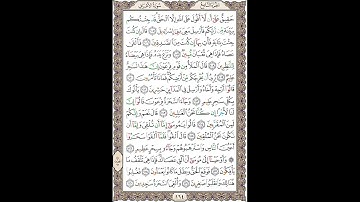 الجزء التاسع سورة الأعراف
حَقِيقٌ عَلَىٰٓ أَن لَّآ أَقُولَ عَلَى ٱللَّهِ إِلَّا ٱلْحَقَّ قَدْ جِئْتُكُم
بِبَيِّنَةٍ مِّن رَّبِّكُمْ فَأَرْسِلْ مَعِىَ بَنِىٓ إِسْرَٰٓءِيلَ ١٠٥ قَالَ إِن كُنتَ
جِئْتَ بِـَٔايَةٍ فَأْتِ بِهَآ إِن كُنتَ مِنَ ٱلصَّٰدِقِينَ ١٠٦ فَأَلْقَىٰ
عَصَاهُ فَإِذَا هِىَ ثُعْبَانٌ مُّبِينٌ ١٠٧ وَنَزَعَ يَدَهُۥ فَإِذَا هِىَ بَيْضَآءُ
لِلنَّٰظِرِينَ ١٠٨ قَالَ ٱلْمَلَأُ مِن قَوْمِ فِرْعَوْنَ إِنَّ هَٰذَا لَسَٰحِرٌ
عَلِيمٌ ١٠٩ يُرِيدُ أَن يُخْرِجَكُم مِّنْ أَرْضِكُمْ فَمَاذَا تَأْمُرُونَ ١١٠
قَالُوٓا۟ أَرْجِهْ وَأَخَاهُ وَأَرْسِلْ فِى ٱلْمَدَآئِنِ حَٰشِرِينَ ١١١ يَأْتُوكَ
بِكُلِّ سَٰحِرٍ عَلِيمٍ ١١٢ وَجَآءَ ٱلسَّحَرَةُ فِرْعَوْنَ قَالُوٓا۟ إِنَّ
لَنَا لَأَجْرًا إِن كُنَّا نَحْنُ ٱلْغَٰلِبِينَ ١١٣ قَالَ نَعَمْ وَإِنَّكُمْ
لَمِنَ ٱلْمُقَرَّبِينَ ١١٤ قَالُوا۟ يَٰمُوسَىٰٓ إِمَّآ أَن تُلْقِىَ وَإِمَّآ أَن
نَّكُونَ نَحْنُ ٱلْمُلْقِينَ ١١٥ قَالَ أَلْقُوا۟ فَلَمَّآ أَلْقَوْا۟ سَحَرُوٓا۟
أَعْيُنَ ٱلنَّاسِ وَٱسْتَرْهَبُوهُمْ وَجَآءُو بِسِحْرٍ عَظِيمٍ ١١٦
۞ وَأَوْحَيْنَآ إِلَىٰ مُوسَىٰٓ أَنْ أَلْقِ عَصَاكَ فَإِذَا هِىَ تَلْقَفُ مَا
يَأْفِكُونَ ١١٧ فَوَقَعَ ٱلْحَقُّ وَبَطَلَ مَا كَانُوا۟ يَعْمَلُونَ ١١٨ فَغُلِبُوا۟
هُنَالِكَ وَٱنقَلَبُوا۟ صَٰغِرِينَ ١١٩ وَأُلْقِىَ ٱلسَّحَرَةُ سَٰجِدِينَ ١٢٠
١٦٤